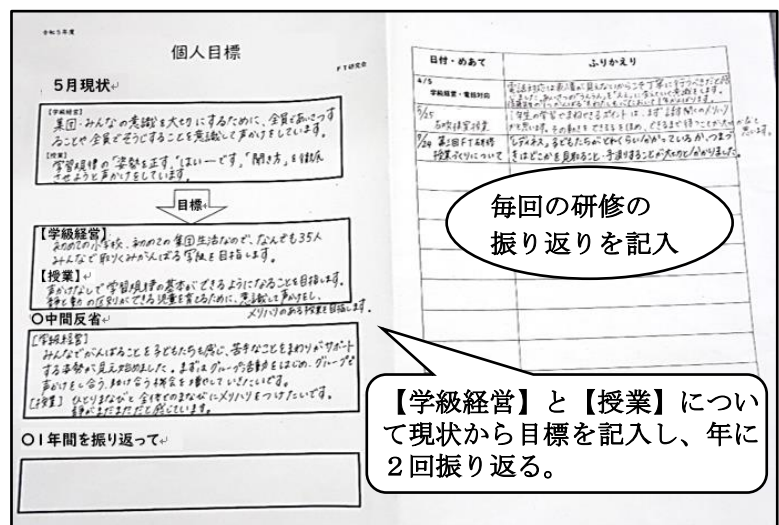 令和5年度
個人目標
FT研究会
5月現状
【学級経営】
集団・みんなの意識を大切にするために、全員であいさつす
ることや全員でそうじすることを意識して声かけをしています。
【授業】
学習規律の"姿勢を正す"、"はい～です"、"聞き方"、を徹底
させようと声かけをしています。
目標
【学級経営】
初めての小学校、初めての集団生活なので、なんでも35人
みんなで取りくみがんばる学級を目指します。
【授業】
声かけなしで学習規律の基本ができるようになることを目指します。
静と動の区別ができる児童を育てるために、意識して声かけをし、
メリハリのある授業を目指します。
〇中間反省
【学級経営】
みんなでがんばることを子どもたちも感じ、苦手なことをまわりがサポート
する姿勢が見え始めました。まずはグループ活動をはじめ、グループで
声かけをし合う、助け合う機会を増やしていきたいです。
【授業】 ひとりまなびと全体でのまなびにメリハリをつけたいです。
静がまだまだだと感じています。
〇1年間を振り返って
日付・めあて
ふりかえり
4/5
学級経営・電話対応
電話対応は表情が見えないからこそ丁寧に行うべきだと
5/25
示範授業
1年生の学習で
第2回FT研修
授業づくりについて
レディネス。子どもたちがどれくらい分かっているか、つまづ
きはどこかを見取ること・手渡りすることが大切だと分かりました。
毎回の研修の
振り返りを記入
【学級経営】と【授業】につい
て現状から目標を記入し、年に
２回振り返る。